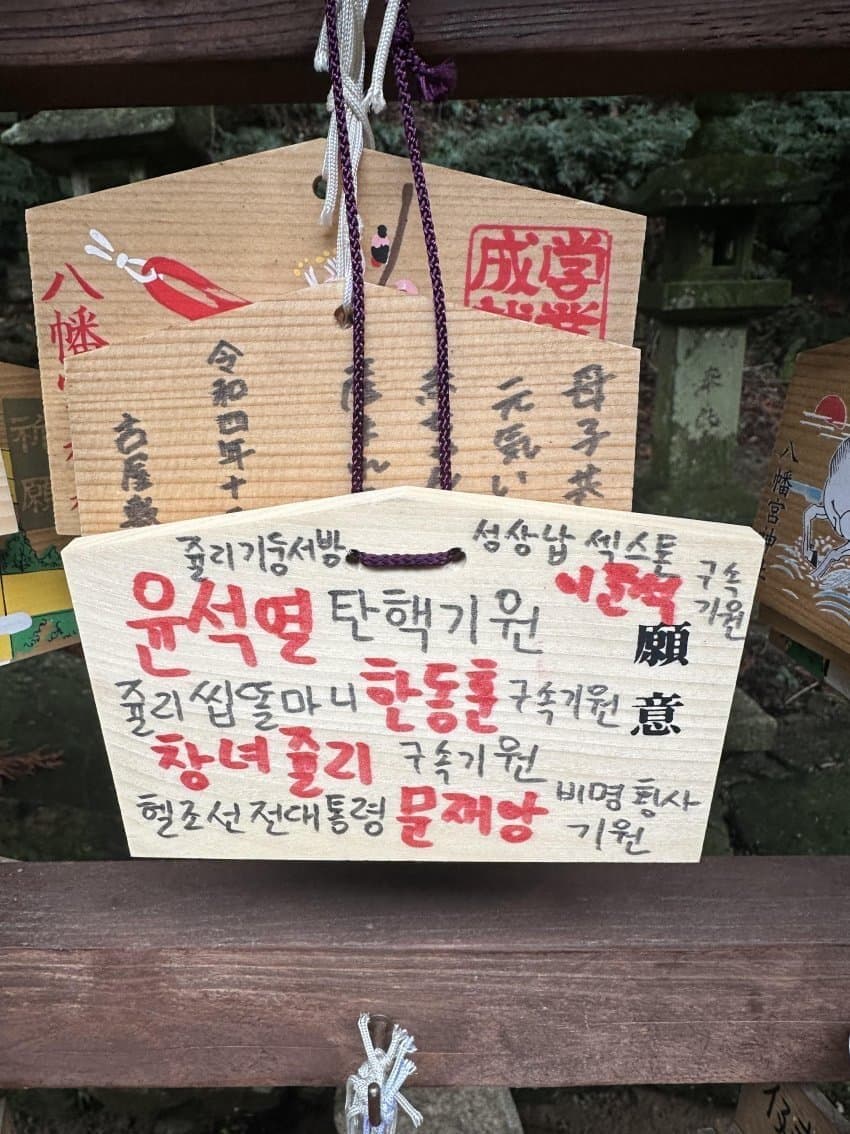 学業
成
八幡
母子
元気い
令和四年十
古屋
祈願
八幡宮神
쥴리기둥서방
윤석열 탄핵기원
성상납 섹스톤
이준석 구속
기원
쥴리씹똘마니 한동훈 구속기원
창녀쥴리 구속기원
헬조선전대통령 문재앙 비명횡사
기원
願意